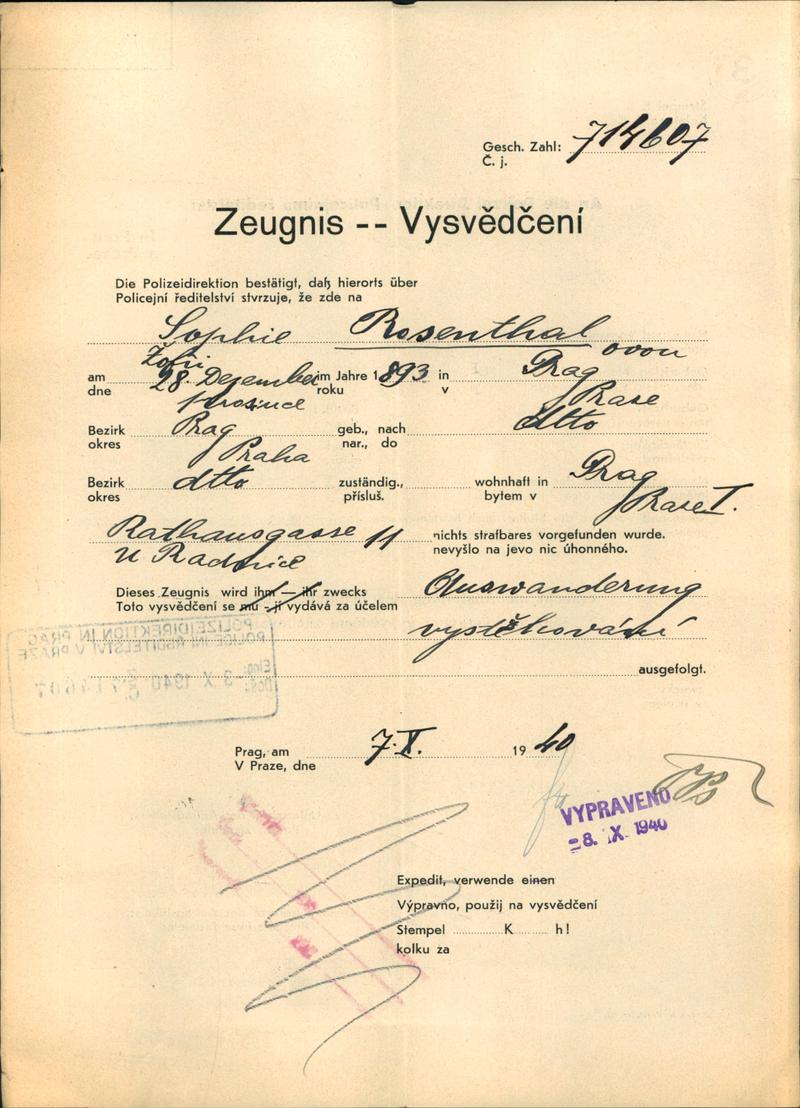 Gesch. Zahl: 714607
Č. j.
Zeugnis -- Vysvědčení
Die Polizeidirektion bestätigt, daß hierorts über
Policejní ředitelství stvrzuje, že zde na
Sophie Rosenthal ovou
Žofii
am 28. Dezember im Jahre 1893 in Prag
dne prosince roku v Praze
Bezirk Prag geb., nach dtto
okres Praha nar., do
Bezirk dtto zuständig., wohnhaft in Prag
okres přísluš. bytem v Praze I.
Rathausgasse 11 nichts strafbares vorgefunden wurde.
U Radnice nevyšlo na jevo nic úhonného.
Dieses Zeugnis wird ihm — ihr zwecks Auswanderung
Toto vysvědčení se mu - jí vydává za účelem
vystěhování
POLIZEIDIREKTION IN PRAG
POLICEJNÍ ŘEDITELSTVÍ V PRAZE
Eing.: 3 X 1940
Došlo: 714607
ausgefolgt.
Prag, am 7. X. 1940
V Praze, dne
VYPRAVENO
8. X. 1940
Expedit, verwende einen
Výpravno, použij na vysvědčení
Stempel K h!
kolku za